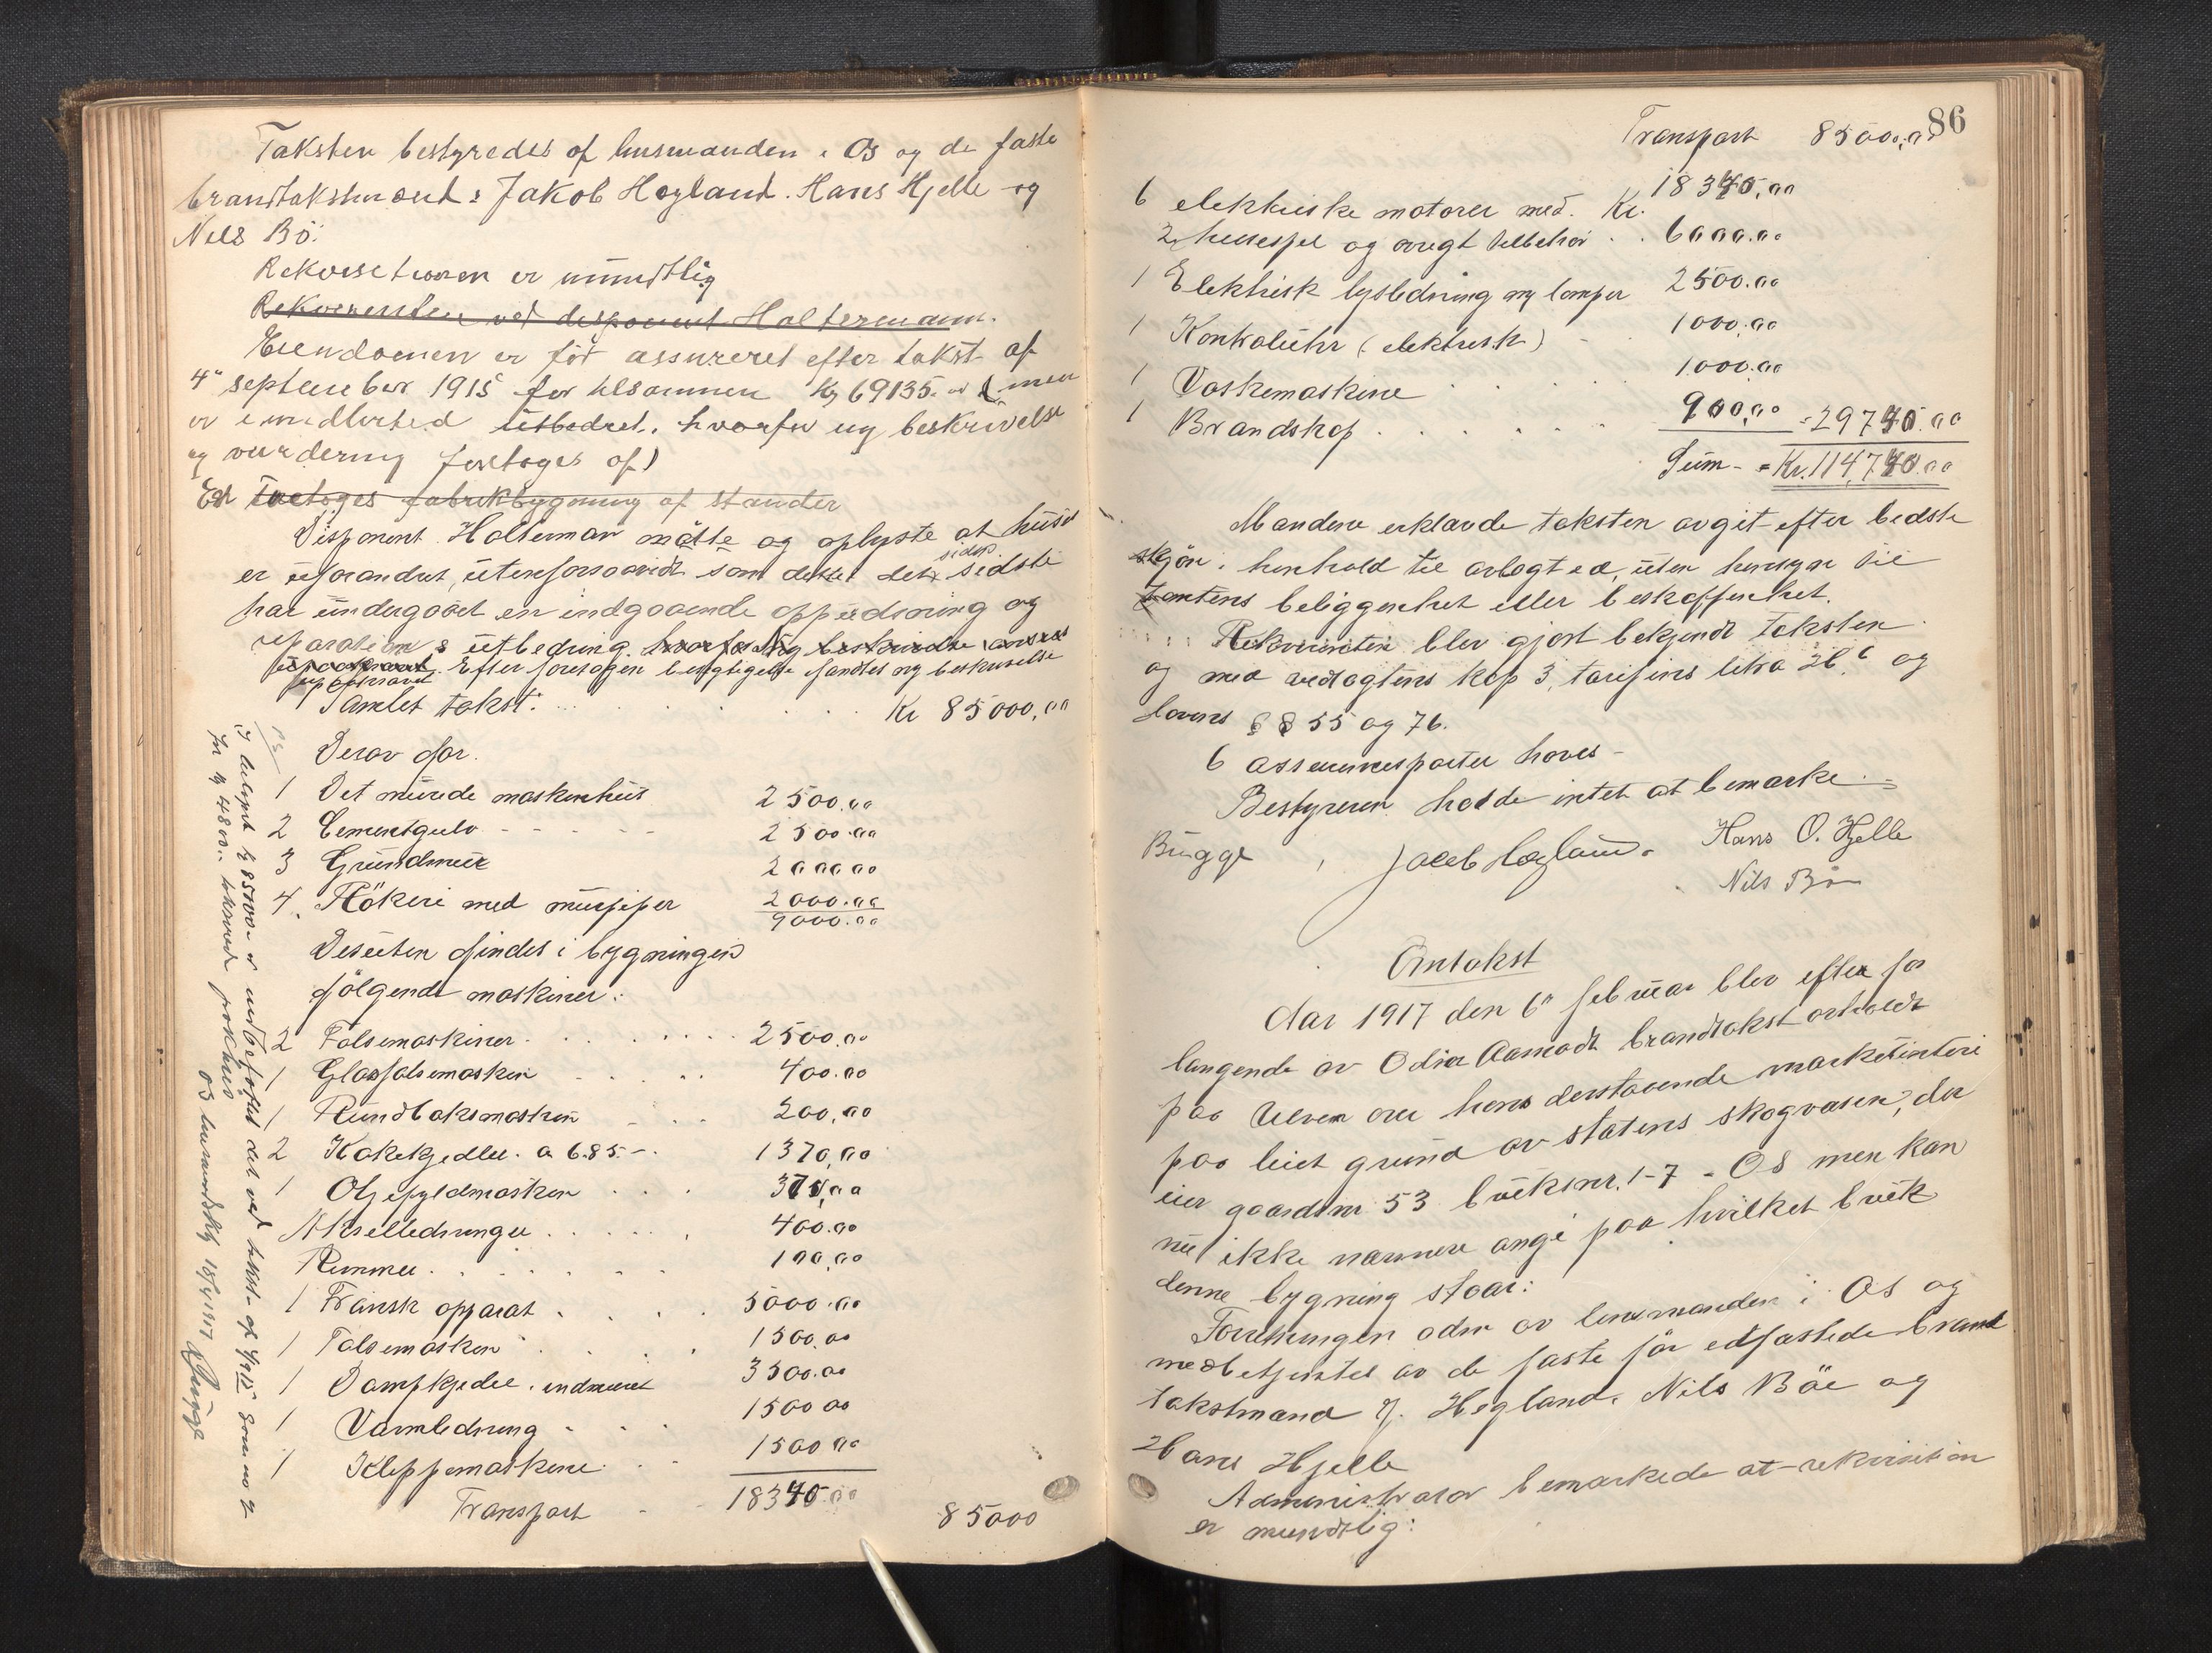 Taksten bestyredes af lensmanden i Os og de faste
brandtakstmænd: Jakob Hegland. Hans Hjelle og
Nils Bö:
Rekvisitionen er mundtlig
Rekvirenten ved disponent Haltermann.
Eiendomen er før assureret efter takst af
4de september 1915 for tilsammen Kr 69135.00 (men
er imidlertid utbedret, hvorfor ny beskrivelse
og vurdering foretoges af)
foretoges fabrikbygning af stander
Disponent Halterman mötte og oplyste at huset
er uforandret, utenforsaavidt som dette siden sidste
har undergaaet en indgaaende oppudsning og
reparation & utbedring. hvorfor Ny beskrivelse
Efter foretagen besigtigelse fandtes ny beskrivelse
upaakrævet.
Samlet takst: Kr 85000,00
Derav for.
1 Det murede maskinhus 2500.00
2 Cementgulv 2500.00
3 Grundmur 2000.00
4. Rökeri med murpiper 2000.00
9000.00
Desuten findes i bygningen
fölgende maskiner:
2 Falsemaskiner 2500.00
1 Glasfalsemaskin 400.00
1 Rundtaksmaskin 200,00
2 Kokekjedler a 685.- 1370,00
1 Oljefyldmaskin 370,00
Akselledninger 400.00
Remmer 100,00
1 Fransk apparat 5000.00
1 Falsemaskin 1500.00
1 Dampkjedel indmuret 3500.00
1 Varmledning 1500.00
1 Kleppemaskine 1500.00
Transport 18340.00 85000
I beløpet kr 85000 er indbefattet det ved takst af 4/9 15 som no 2
for kr 4800 takserte pakhus
Os lensmandsktr. 15/4 1917 Bugge
86
Transport 85000,00
6 elektriske motorer med. Kr. 18340,00
2 heisespil og övrigt tilbehör 6000.00
1 Elektrisk lysledning og lamper 2500.00
1 Kontroluhr (elektrisk) 1000.00
1 Vaskemaskine 1000.00
1 Brandskap 900,00 = 29740.00
Sum = Kr. 114,740.00
Mændene erklærde taksten avgit efter bedste
skjön i henhold til avlagt ed, uten hensyn til
tomtens beliggenhet eller beskaffenhet.
Rekvirenten blev gjort bekjendt taksten
og med vedtægtens kap 3, tarifens litra H6 og
lovens §§ 55 og 76.
6 assurancepartier haves -
Bestyreren hadde intet at bemærke.
Bugge, Jacob Hegland. Hans O. Hjelle
Nils Bö
Omtakst
Aar 1917 den 6te februar blev efter for
langende av Odin Aamodt brandtakst avholdt
paa Ulven over hans derstaaende marketenteri
paa leiet grund av statens skogvæsen, der
eier gaardsnr 53 bruksnr. 1-7 - Os men kan
nu ikke nærmere angi paa hvilket bruk
denne bygning staar:
Forretningen adm av lensmanden i Os og
medbetjentes av de faste før edfæstede brand
takstmænd J. Hegland. Nils Böe og
Hans Hjelle
Administrator bemærkede at rekvisition
er mundtlig: